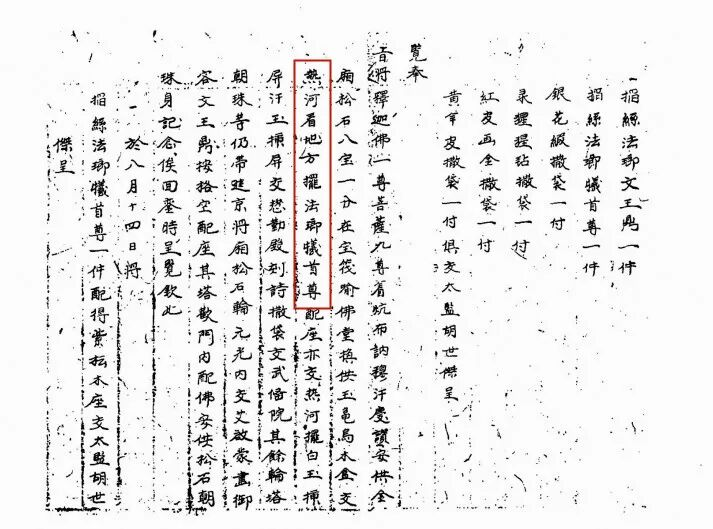 一掐絲法瑯文王鼎一件
掐絲法瑯犧首尊一件
銀花緞撒袋一付
猩猩毡撒袋一付
紅皮画金撒袋一付
黄羊皮撒袋一付俱交太監胡世傑呈
覽奉
旨將釋迦佛一尊菩薩九尊着坑布訥穆汗慶讚安供全
廂松石八宝一分在宝筏喻佛堂換供玉黾烏木盒交
熱河看地方擺法瑯犧首尊配座亦交熱河擺白玉挿
屏汗玉挿屏交懋勤殿刻詩撒袋交武俻院其餘輪塔
朝珠等仍帶進京將廂松石輪元光内交艾啟蒙畫御
容文王鼎按格空配座其塔歡門内配佛安供松石朝
珠身記念俟回鑾時呈覽欽此
於八月十四日將
掐絲法瑯犧首尊一件配得紫松木座交太監胡世
傑呈